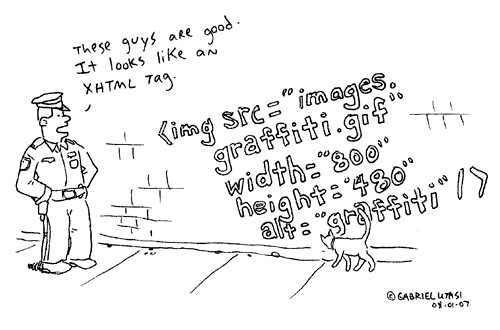 These guys are good.
It looks like an
XHTML Tag.
<img src="images.
graffiti.gif"
width="800"
height="480"
alt="graffiti" />
©GABRIEL UTASI
08.01.07